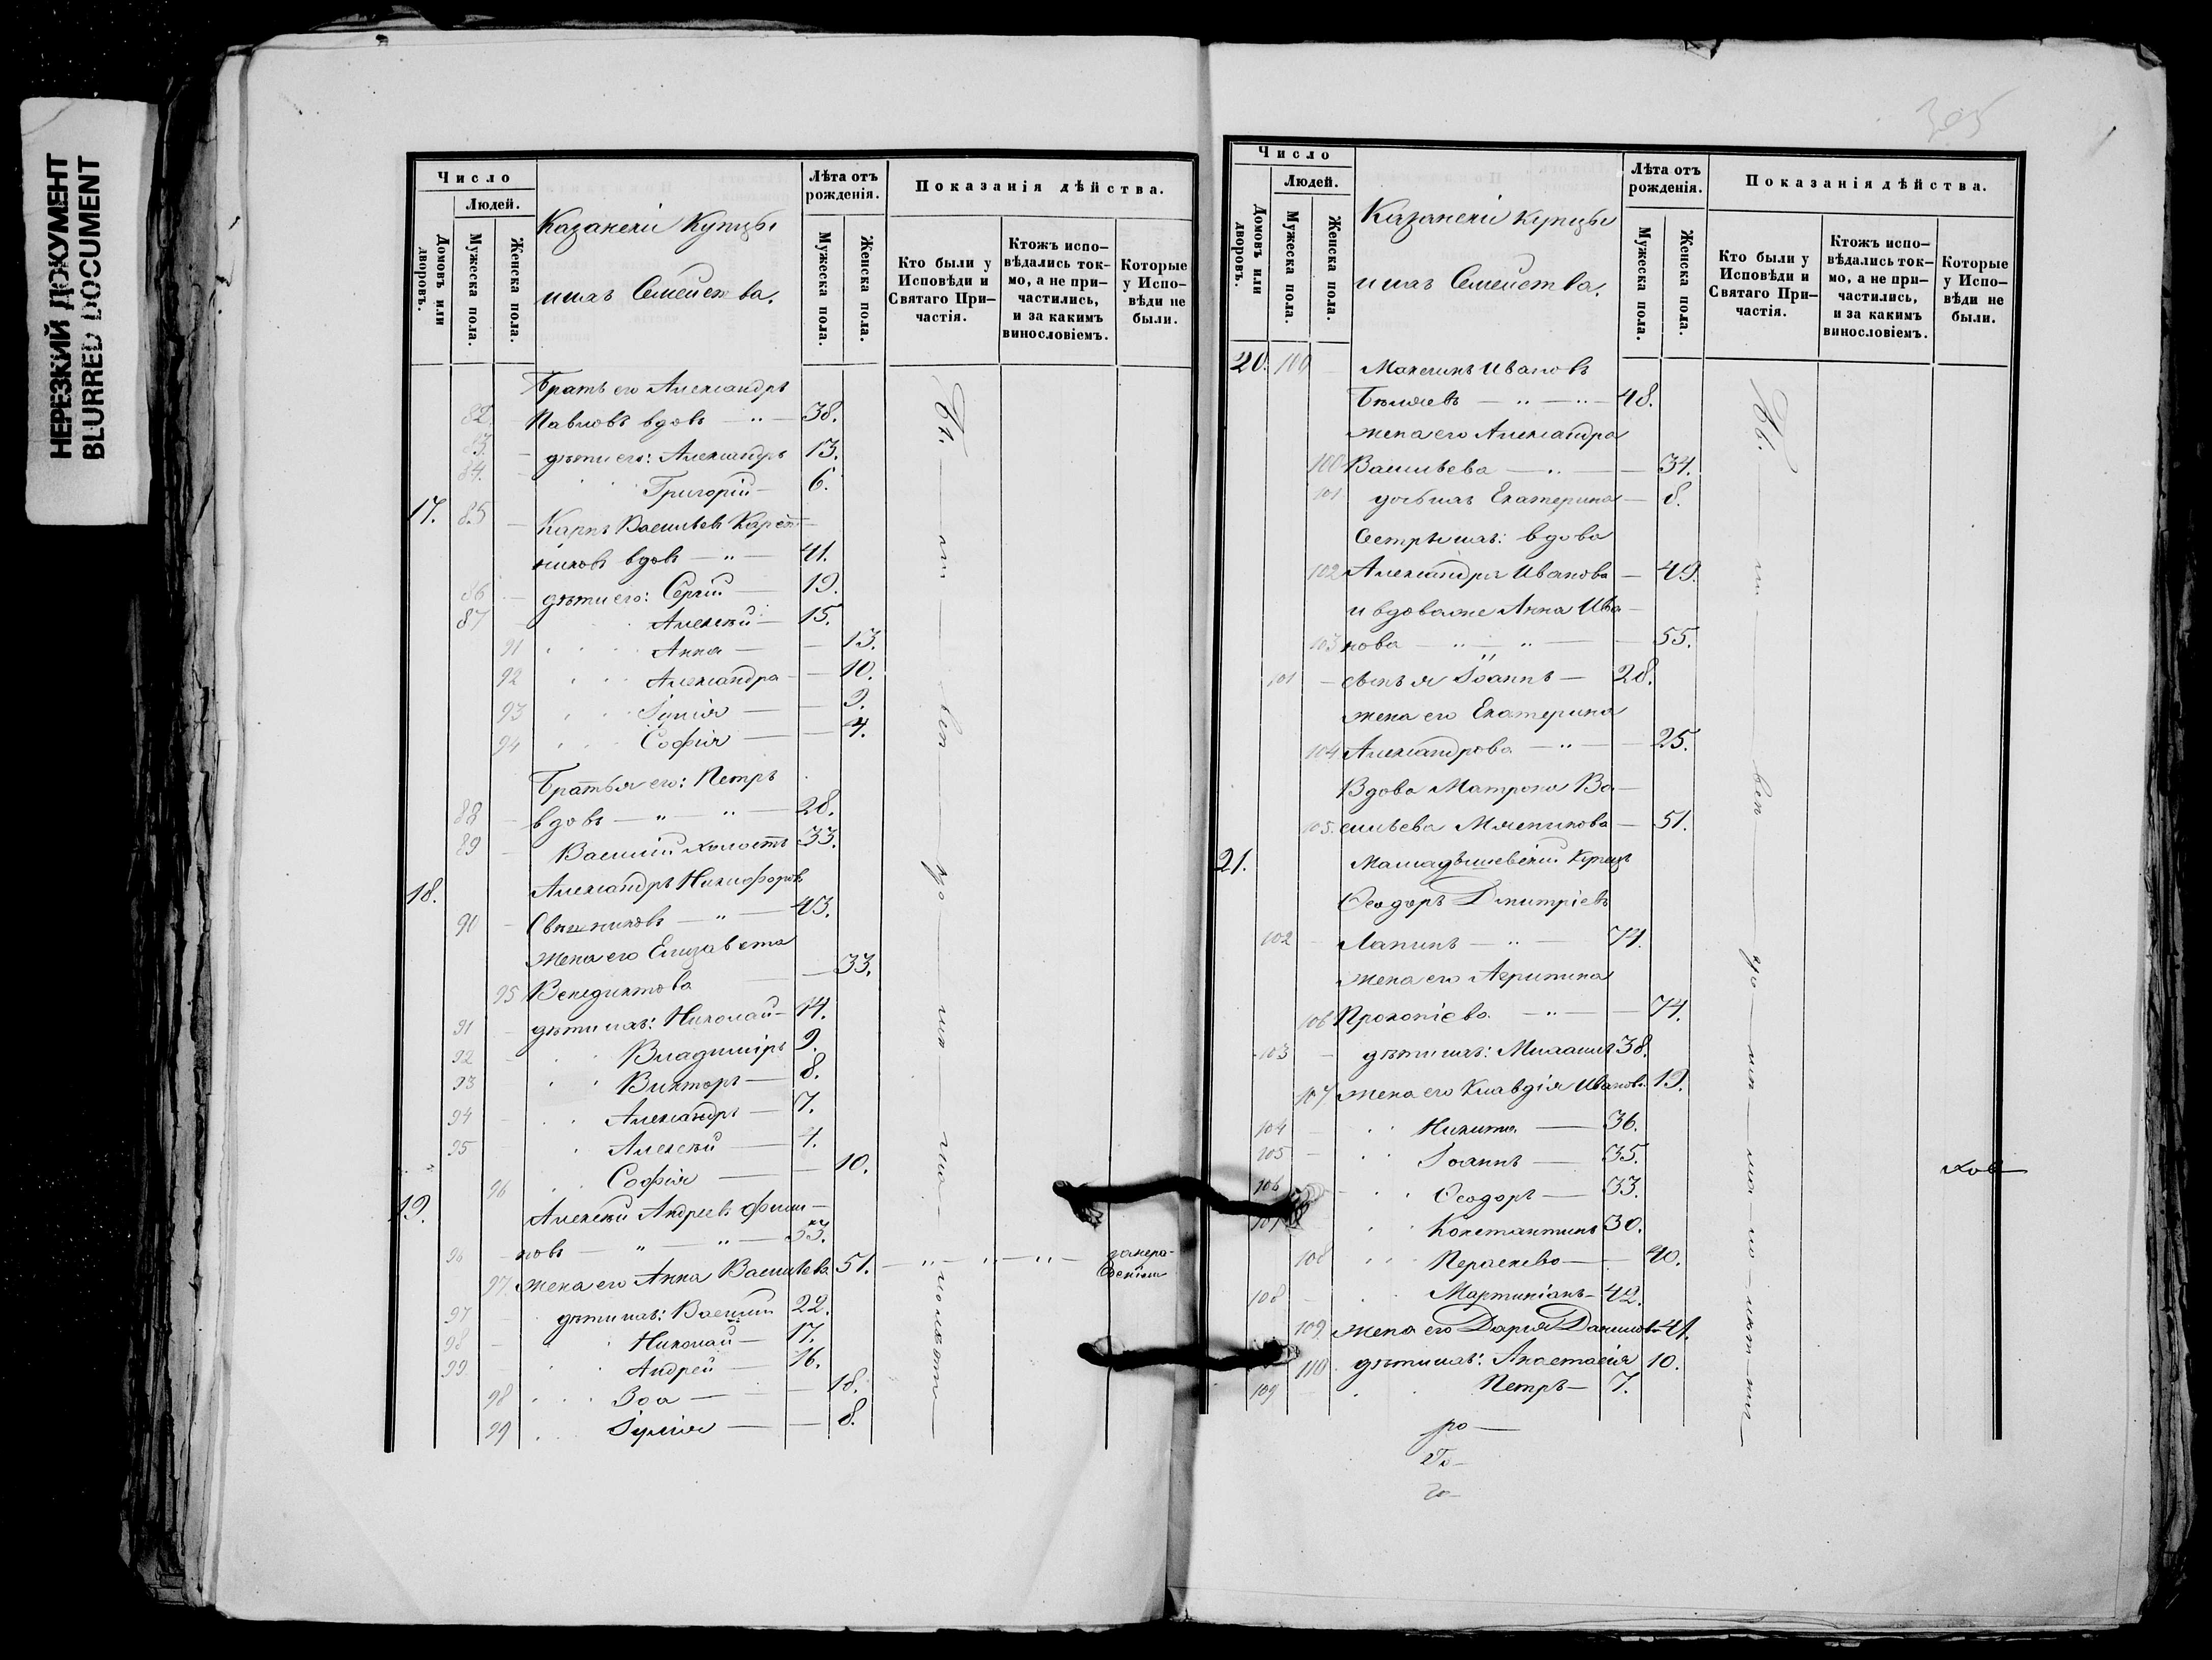 НЕРЕЗКИЙ ДОКУМЕНТ
BLURRED DOCUMENT
Число
Людей.
Домовъ или дворовъ.
Мужеска пола.
Женска пола.
Казанскіи Купцы
и ихъ Семейства.
Лѣта отъ рожденія.
Мужеска пола.
Женска пола.
Показанія дѣйства.
Кто были у Исповѣди и Святаго Причастія.
Ктожъ исповѣдались токмо, а не причастились, и за какимъ винословіемъ.
Которые у Исповѣди не были.
Братъ его Александръ
82. Павловъ вдовъ — " — 38.
83. — дѣти его: Александръ 13.
84. — Григорій — 6.
17. 85 — Карпъ Васильевъ Карет-
никовъ вдовъ — " — 41.
86 — дѣти его: Сергій — 19.
87 — Алексѣй — 15.
91 Анна — — 13.
92 Александра — — 10.
93 Іулія — — 9.
94 Софія — — 4.
Братья его: Петръ
88 — вдовъ — " — " — 28.
89 — Василій холостъ 33.
18. Александръ Никифоровъ
90 — Свѣшниковъ — " — 43.
жена его Елизавета
95 Венедиктова — 33.
91 — дѣти ихъ: Николай — 14.
92 — Владиміръ 9.
93 Викторъ — 8.
94 — Александръ — 7.
95 Алексѣй — 4.
96 Софія — — 10.
19. Алексѣй Андреевъ Фили-
96 — новъ — " — " — 53.
97. жена его Анна Васильева 51. — " — " — " —
97 — дѣти ихъ: Василій 22.
98 — Николай — 17.
99 Андрей — 16.
98 Зоа — — 18.
99 Іулія — — 8.
305
Число
Людей.
Домовъ или дворовъ.
Мужеска пола.
Женска пола.
Казанскіи Купцы
и ихъ Семейства.
Лѣта отъ рожденія.
Мужеска пола.
Женска пола.
Показанія дѣйства.
Кто были у Исповѣди и Святаго Причастія.
Ктожъ исповѣдались токмо, а не причастились, и за какимъ винословіемъ.
Которые у Исповѣди не были.
20. 100 — Максимъ Ивановъ
Бѣляевъ — " — " — 48.
жена его Александра
100 Васильева — " — — 34.
101 дочь ихъ Екатерина — 8.
Сестры ихъ: вдова
102 Александра Иванова — 49.
и вдова же Анна Ива-
103 нова — " — " — — 55.
101 — сынъ ея Іоаннъ — 28.
жена его Екатерина
104 Александрова — " — — 25.
Вдова Матрона Ва-
105. сильева Мясникова — 51.
21. Мамадышевскій Купецъ
Ѳеодоръ Дмитріевъ
102 — Лапинъ — " — 74.
жена его Агрипина
106 Прокопіева — " — — 74.
103 — дѣти ихъ: Михаилъ 38.
107 жена его Клавдія Иванов. 19.
104 — Никита — 36.
105 — Іоаннъ — 35.
106 — Ѳеодоръ — 33.
107 Константинъ 30.
108 Параскева — 40.
108 — Мартиніанъ — 42.
109 жена его Дарія Данилов. 41.
110 дѣти ихъ: Анастасія 10.
109 — Петръ — 7.